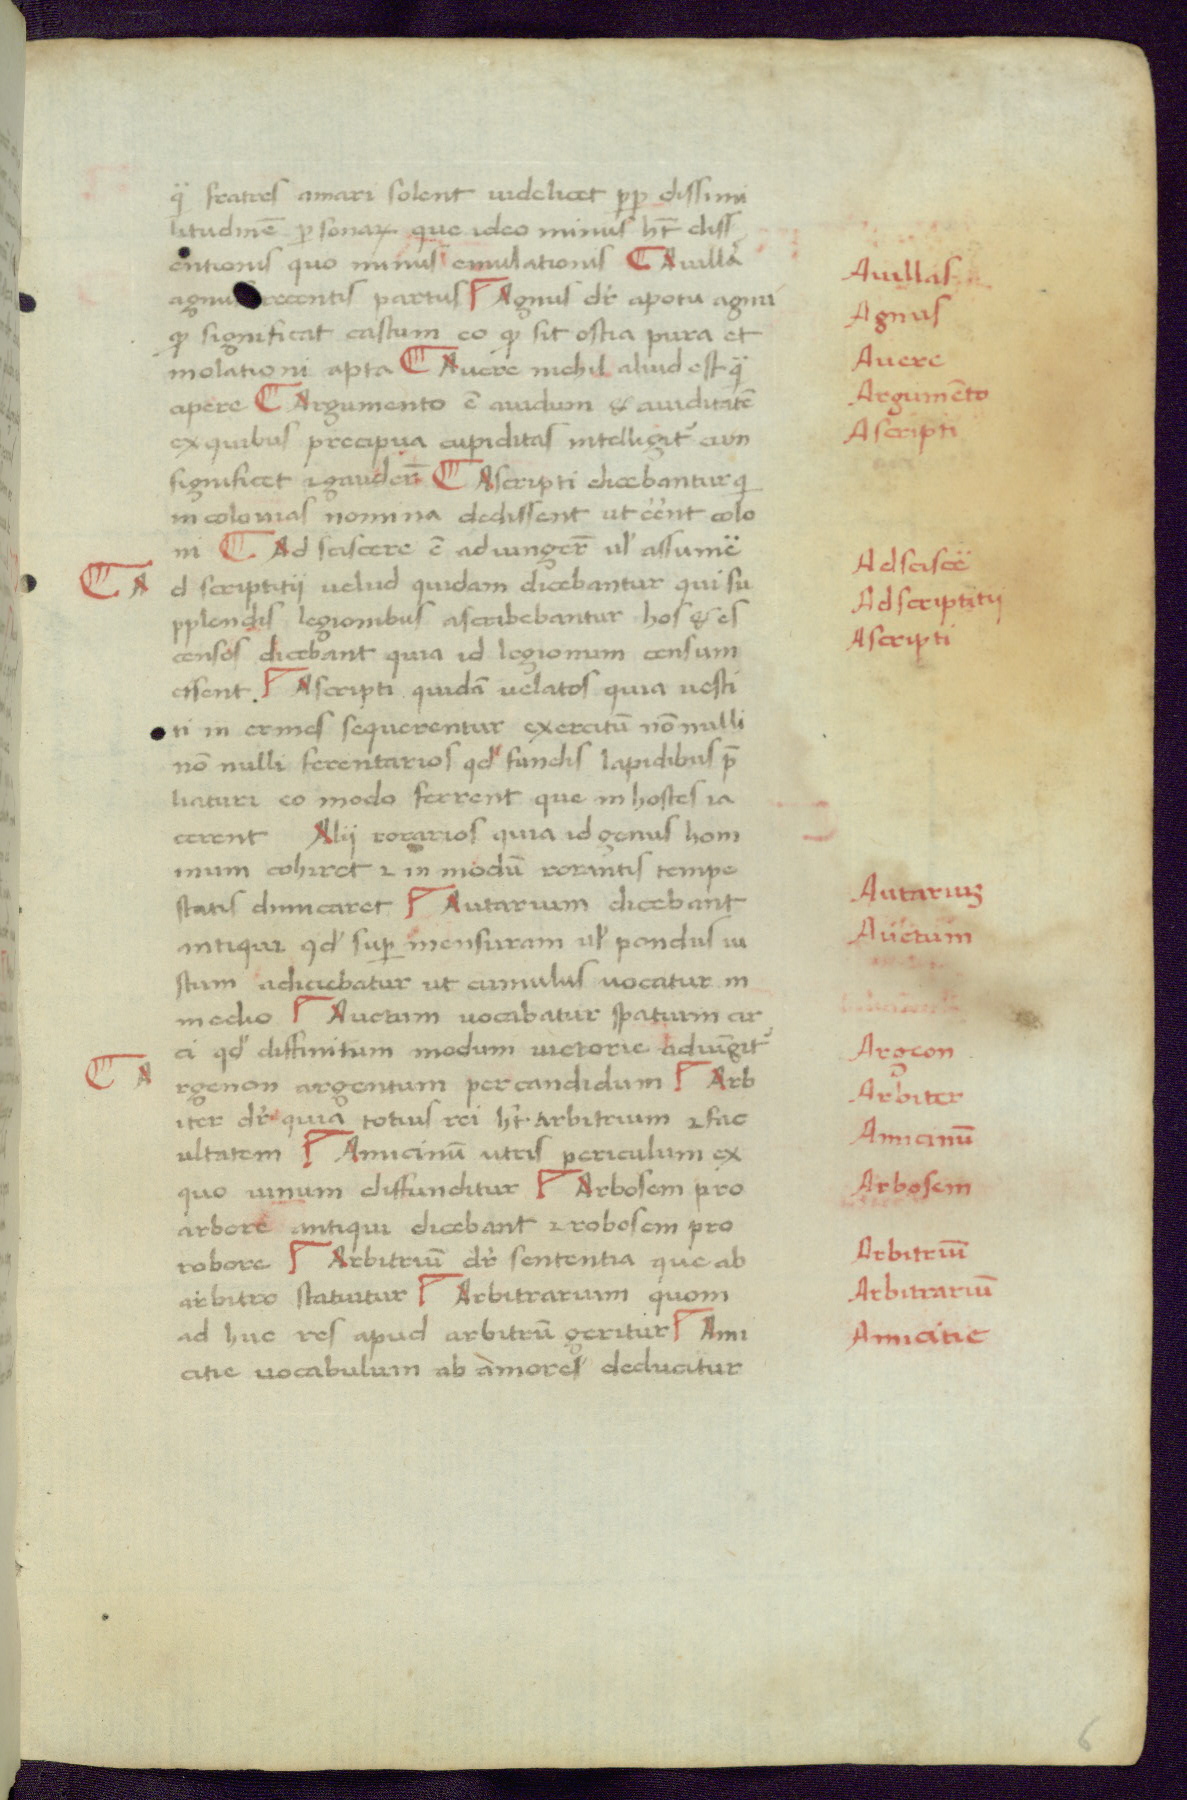 q̈ fratres amari solent uidelicet ꝓp dissimi
litudinē ꝑsonaꝝ que ideo minus hn̄t diss
entionis quo minus emulationis ⸿ Auilla
agnus recentis partus Agnus dr̄ apotu agnu
ꝙ significat castum eo ꝙ sit ostia pura et
molationi apta ⸿ Auere nichil aliud est q̈
apere ⸿ Argumento ē auidum & auiditatē
ex quibus precipua cupiditas intelligit᷑ cum
significet ⁊ gauder̄ ⸿ Ascripti dicebantur q
in colonias nomina dedissent ut eēnt colo
ni ⸿ Ad sciscere ē ad iunger̄ ul' assumē
⸿ Ad scriptitij uelud quidam dicebantur qui su
pplendis legionibus ascribebantur hos & es
censos dicebant quia id legionum censum
essent Ascripti quidā uelatos quia uesti
ti in ermes sequerentur exercitū nō nulli
nō nulli ferentarios qd' fundis lapidibus p̄
liaturi eo modo ferrent que in hostes ia
cerent Alij rorarios quia id genus hom
inum cohiret ⁊ in modū rorantis tempe
statis dimicaret Autarium dicebant
antiqui qd' suꝑ mensuram ul' pondus iu
stum adiciebatur ut cumulus uocatur in
medio Auctum uocabatur spatium cir
ci qd' diffinitum modum uictorie adiūgit᷑
⸿ Argenon argentum per candidum Arb
iter dr̄ quia totius rei ht̄ arbitrium ⁊ fac
ultatem Amicinū utris periculum ex
quo uinum diffunditur Arbosem pro
arbore antiqui dicebant ⁊ robosem pro
robore Arbitriū dr̄ sententia que ab
arbitro statuitur Arbitrarium quom
ad huc res apud arbitrū geritur Ami
citie uocabulum ab amores deducitur
Auillas
Agnus
Auere
Argumēto
Ascripti
Ad sciscē
Ad scriptitij
Ascripti
Autariuꝫ
Auctum
Argeon
Arbiter
Amicinū
Arbosem
Arbitriū
Arbitrariū
Amicitie
6